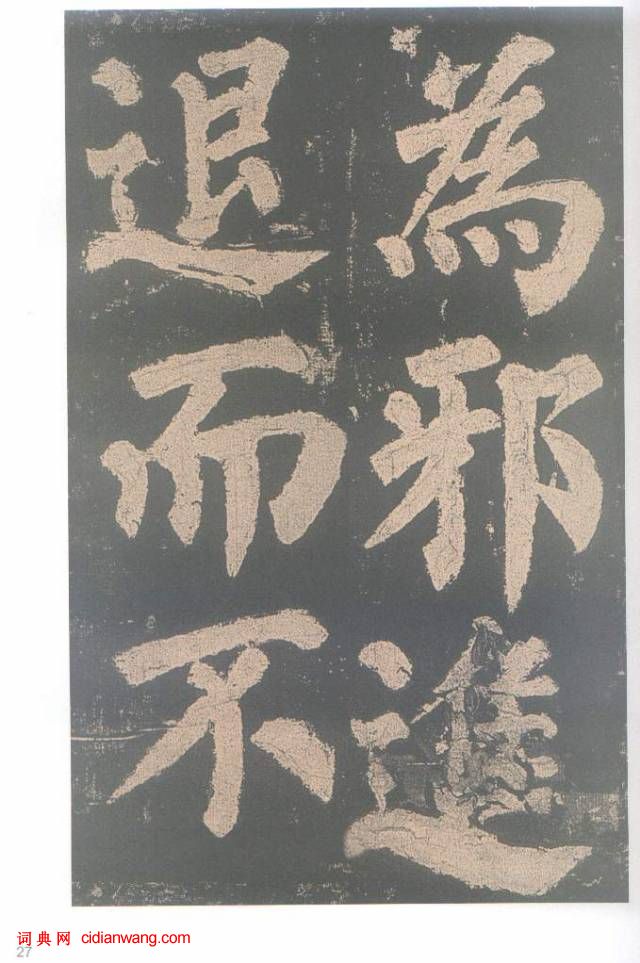 為邪進
退而不
词典网 cidianwang.com
27